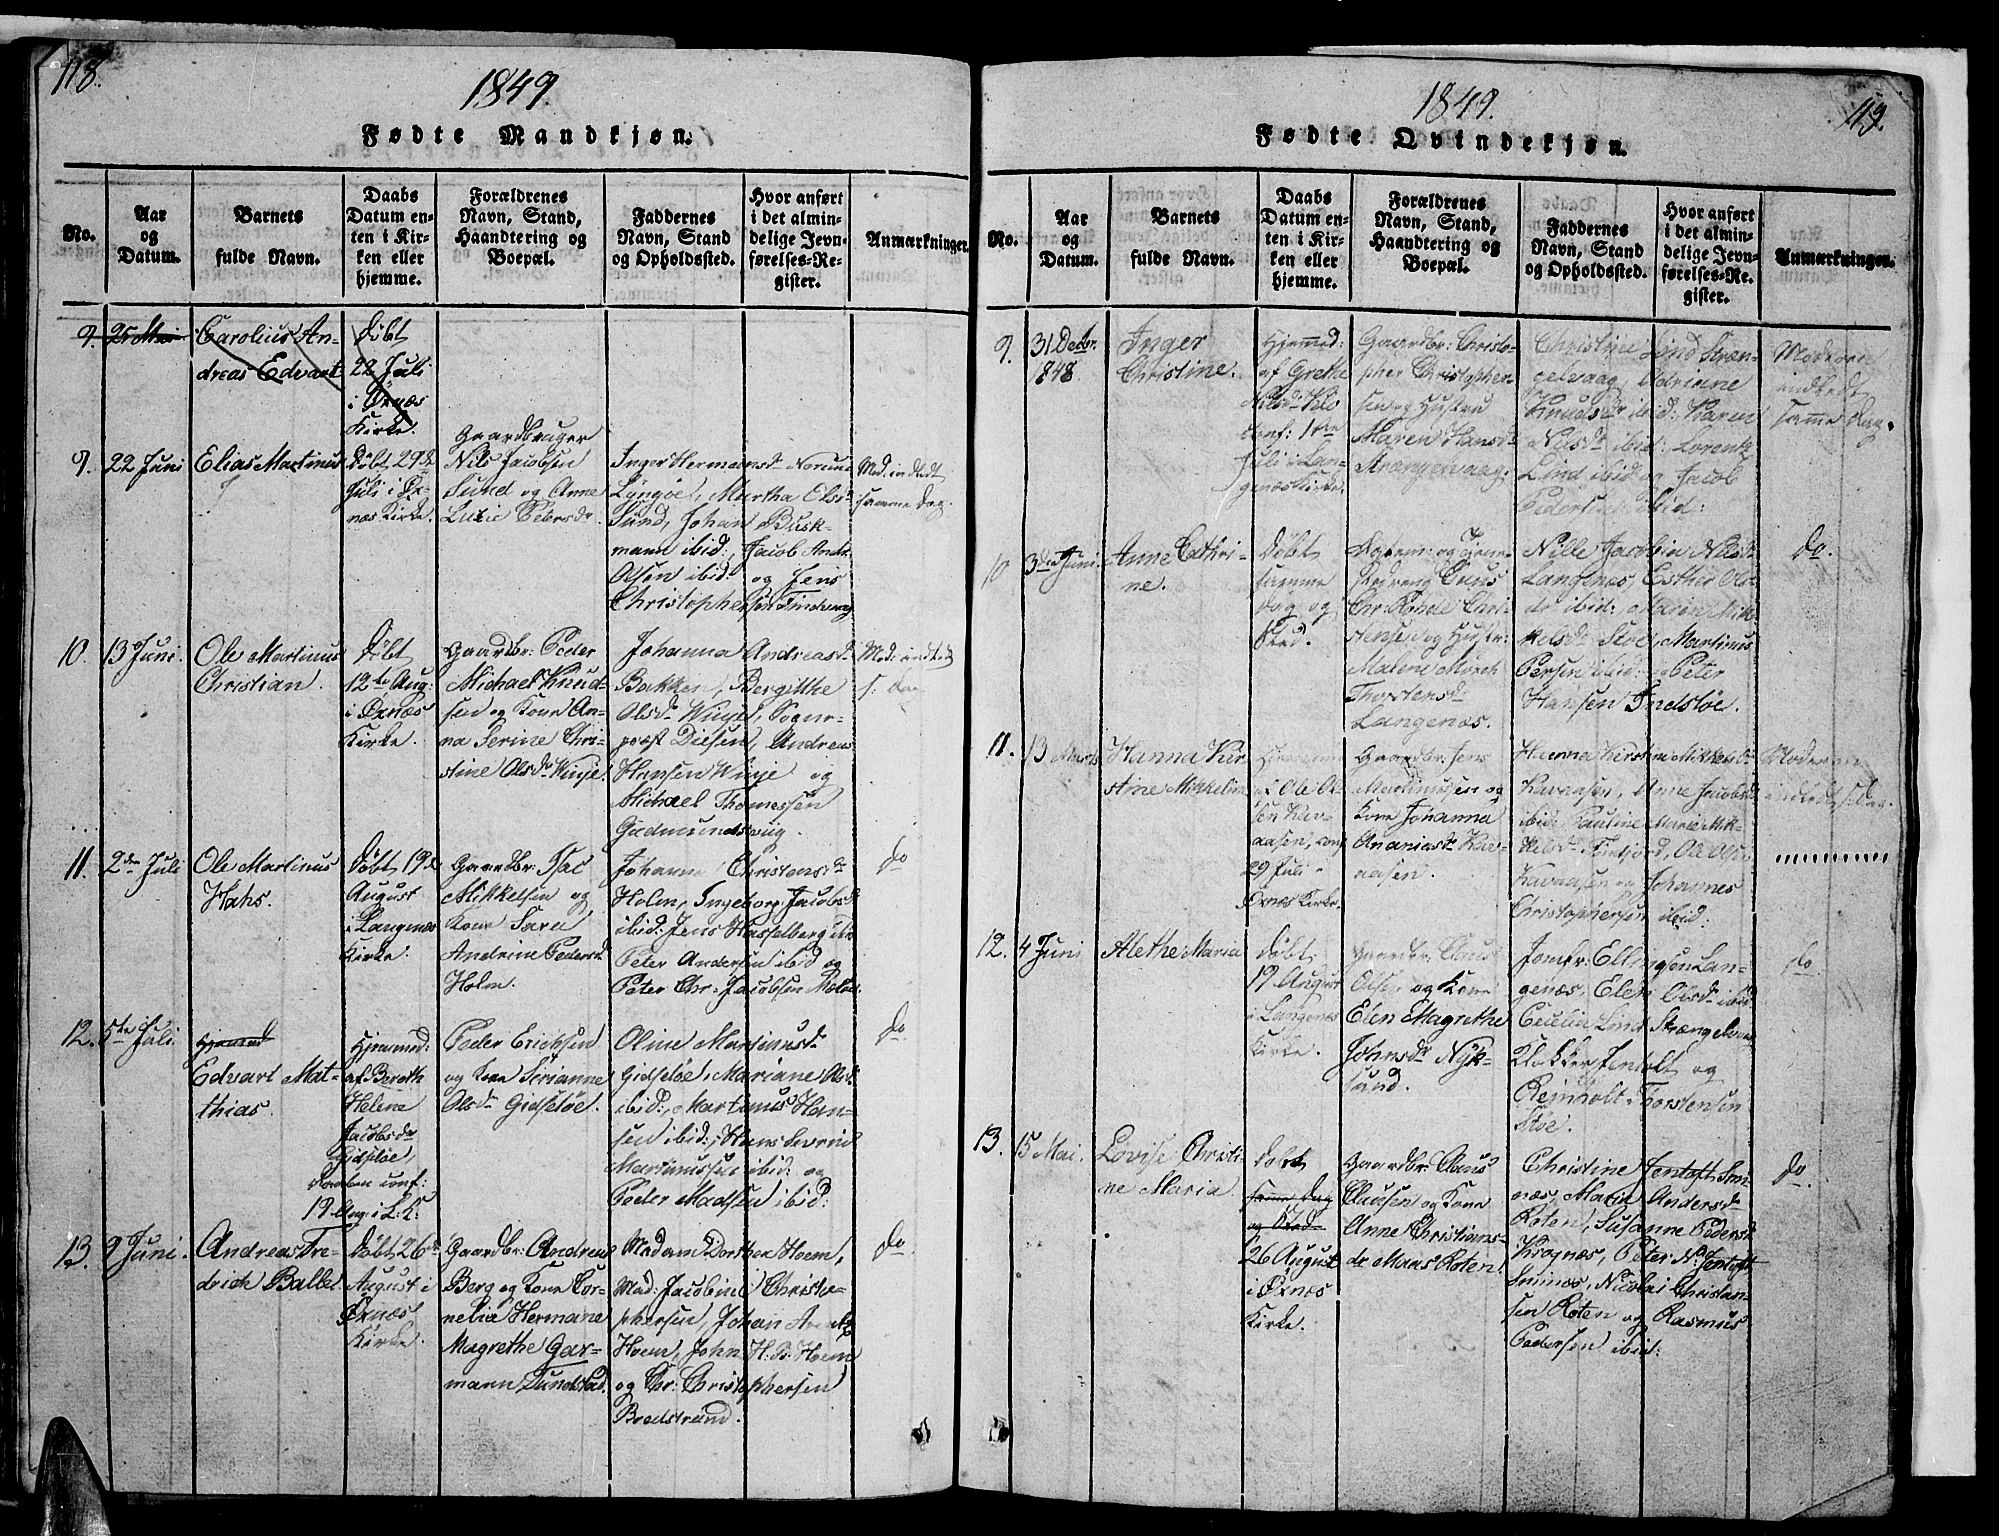 118.
1849.
Fødte Mandkjøn.
No.
Aar
og
Datum.
Barnets
fulde Navn.
Daabs
Datum en-
ten i Kir-
ken eller
hjemme.
Forældrenes
Navn, Stand,
Haandtering og
Boepæl.
Faddernes
Navn, Stand
og Opholdssted.
Hvor anført
i det almin-
delige Jevn-
førelses-Re-
gister.
Anmærkninger.
9.
25 Mai
Carolius An-
dreas Edvart
Døbt
22 Juli
i Øxnæs
Kirke.
9.
22 Juni
Elias Martinus
Døbt 29de
Juli i Øx-
næs Kirke.
Gaardbruger
Nils Jacobsen
Sund og Anne
Lucie Petersdr.
Inger Hermansdr Norum
Lyngøe, Martha Olsdr
Sund, Johan Busk-
mann ibid:, Jacob Andr:
Olsen ibid: og Jens
Christophersen Tindvaag
Mod. indledt
samme Dag.
10.
13 Juni.
Ole Martinus
Christian.
Døbt
12te Aug:
i Øxnæs
Kirke.
Gaardbr: Peder
Michael Knud-
sen og Kone An-
na Serine Chri-
stine Olsdr Winje.
Johanna Andreasdr
Bakken, Bergitthe
Olsdr Winje, Sogne-
præst Diesen, Andreas
Hansen Winje og
Michael Thomessen
Gudmundsvig.
Mod: indledt
s: Dag
11.
2den Juli
Ole Martinus
Hans.
Døbt 19de
August
i Langenæs
Kirke.
Gaardbr: Isac
Mikkelsen og
Kone Sara
Andrine Pedersdr
Holm.
Johanna Christensdr
Holm, Ingeborg Jacobsdr
ibid: Jens Hasselberg ibid
Peter Andersen ibid og
Peter Chr: Jacobsen Meløe.
do
12.
5te Juli.
Hjemmed
Edvart Mat-
thias.
Hjemmed:
af Bereth
Helene
Jacobsdr
Gidsløe,
Daaben conf:
19 Aug: i L: K:
Peder Erichsen
og Kone Serianne
Olsdr Gidsløe.
Oline Martinusdr
Gidsløe, Mariane Olsdr
ibid:, Martinus Han-
sen ibid:, Hans Severin
Martinussen ibid: og
Peder Madsen ibid:
do.
13.
9 Juni.
Andreas Fre-
drich Balle.
Døbt 26de
August i
Øxnæs
Kirke.
Gaardbr: Andreas
Berg og Kone Cor-
nelia Hermane
Magrethe Gar-
mann, Tundstad.
Madam Dorthea Hoem,
Mad: Jacobine Christo-
phersen, Johan Arentz
Hoem, John H. B. Hoem
og Chr: Christophersen
Bredstrand.
do.
119.
1849.
Fødte Qvindekjøn.
No.
Aar
og
Datum.
Barnets
fulde Navn.
Daabs
Datum en-
ten i Kir-
ken eller
hjemme.
Forældrenes
Navn, Stand,
Haandtering og
Boepæl.
Faddernes
Navn, Stand
og Opholdssted.
Hvor anført
i det almin-
delige Jevn-
førelses-Re-
gister.
Anmærkninger.
9.
31 Decbr.
1848.
Inger
Christine.
Hjemmed:
af Grethe
Nilsdr
conf: 1ste
Juli i Lan-
genæs Kirke.
Gaardbr: Christo-
pher Christopher-
sen og Hustru
Maren Hansdr
Strængelvaag.
Christine Lind Stræn-
gelvaag, Adriane
Knudsdr ibid: Karen
Nilsdr ibid: Lorentz
Lind ibid og Jacob
Pedersen ibid:
Moderen
indledt
samme Dag.
10
3die Juni
Anne Cathri-
ne.
Døbt
samme
Dag og
Sted.
og Gjæst-
Claus
Chr: Rohde Chri-
stensen og Hustr:
Malene Mørch
Thorstensdr
Langenæs.
Nille Jacobia Nilsdr
Langenæs, Esther Ols-
dr ibid: Maren Mik-
kelsdr Støe, Martinus
Persen ibid: og Peter
Hansen Indstøe.
do.
11.
13 Marts
Hanna Kir-
stine Mikkeline
Hjemme
af Ole Ol-
sen Kav-
aasen, conf
29 Juli i
Øxnæs Kirke.
Gaardbr: Jens
Martinussen og
Kone Johanna
Ananiasdr Kav-
aasen.
Hanna Kirstine Mikkelsdr
Kavaasen, Anne Jacobsdr
ibid: Pauline Marie Mik-
kelsdr Tunfjord, Ole Olsen
Kavaasen og Johannes
Christophersen ibid:
Moderen
indledt s: Dag.
12.
4 Juni
Alethe Maria
Døbt
19 August
i Langenæs
Kirke.
Gaardbr: Claus
Olsen og Kone
Elen Magrethe
Johnsdr Nyk-
sund.
Jomfr: Ellingsen Lan-
genæs, Elen Olsdr ibid
Cecelia Lind Strængelvaag
Klokker Jentoft og
Reinholt Thorstensen
Støe.
do
13.
15 Mai.
Lovise Christi-
ne Maria.
Døbt
samme Dag
og Sted
26 August
i Øxnæs
Kirke.
Gaardbr: Claus
Clausen og Kone
Anne Christians-
dr Maas Roten.
Christine Jentoft Smi-
næs, Maria Andersdr
Roten, Susanne Pedersdr
Krognæs, Peter N. Jentoft
Sminæs, Nicolai Christian-
sen Roten og Rasmus
Pedersen ibid:
do.